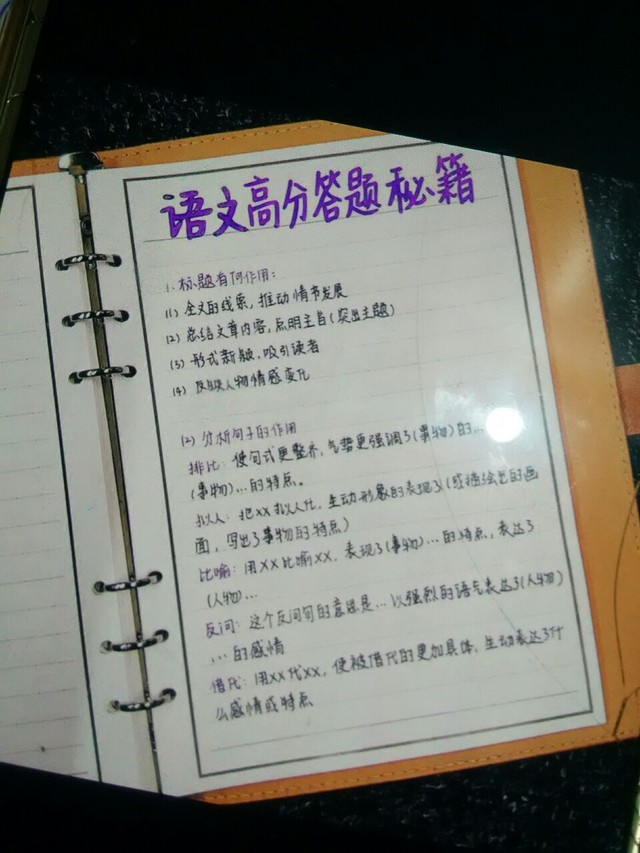 语文高分答题秘籍
1. 标题有何作用:
(1) 全文的线索,推动情节发展
(2) 总结文章内容,点明主旨(突出主题)
(3) 形式新颖,吸引读者
(4) 反映人物情感变化
(2) 分析句子的作用
排比: 使句式更整齐,气势更强调了(事物)的...
(事物)...的特点。
拟人: 把XX拟人化,生动形象的表现了(或描绘出的画
面,写出了事物的特点)
比喻: 用XX比喻XX,表现了(事物)...的特点,表达了
(人物)...
反问: 这个反问句的意思是...以强烈的语气表达了(人物)
...的感情
借代: 用XX代XX,使被借代的更加具体,生动表达了什
么感情或特点